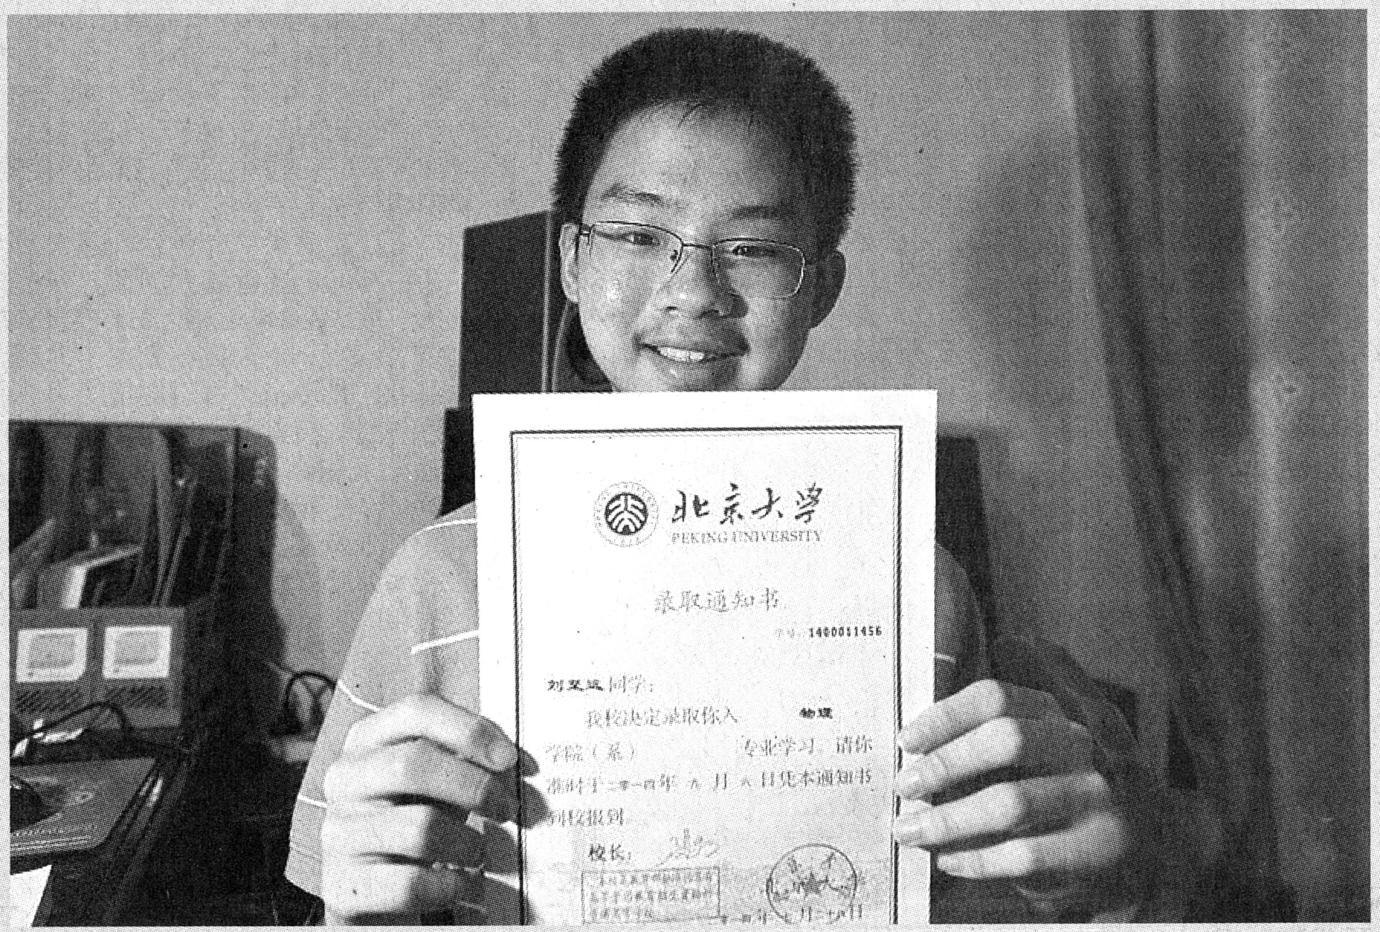 北京大学
PEKING UNIVERSITY
录取通知书
学号：1400011456
刘坚远同学：
我校决定录取你入 物理
学院（系） 专业学习。请你
准时于二零一四年 九 月 六 日凭本通知书
到校报到。
校长：
二零一四年七月二十八日